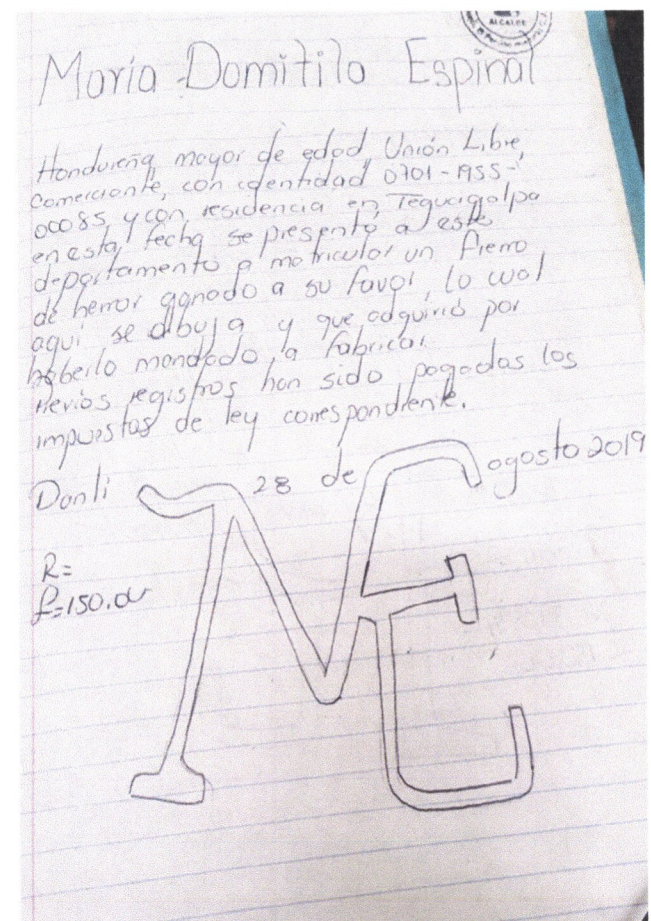 ALCALDE
María Domitila Espinal
Hondureña mayor de edad, Unión Libre,
Comerciante, con identidad 0701-1955-
00085, y con residencia en Tegucigalpa
en esta fecha se presentó a este
departamento a matricular un fierro
de herrar ganado a su favor, lo cual
aquí se dibuja y que adquirió por
haberlo mandado a fabricar.
Previos registros han sido pagados los
impuestos de ley correspondiente.
Danli 28 de agosto 2019
R=
£=150.00